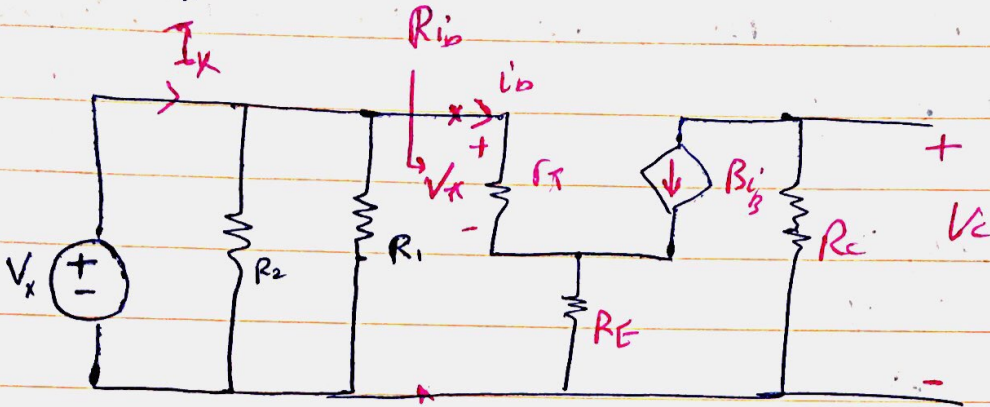 Ix
Rib
ib
+
Vπ
rπ
-
βiB
+
Vc
-
Rc
R1
R2
Vx
+
-
RE